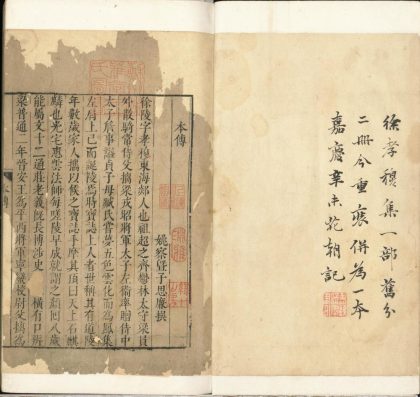 徐孝穆集一部舊分
二冊今重裹併為一本
嘉慶辛未花朝記
本傳
姚察暨子思廉撰
徐陵字孝穆東海郯人也祖超之齊鬱林太守梁員
外散騎常侍父摛梁戎昭將軍太子左衛率贈侍中
太子詹事諡貞子母臧氏嘗夢五色雲化而為鳳集
左肩上已而誕陵焉時寶誌上人者世稱其有道陵
年數歲家人攜以候之寶誌手摩其頂曰天上石麒
麟也光宅惠雲法師每嗟陵早成就謂之顏回八歲
能屬文十二通莊老義既長博涉史 橫有口辯
梁普通二年晉安王為平西將軍寧蠻校尉父摛為
本傳